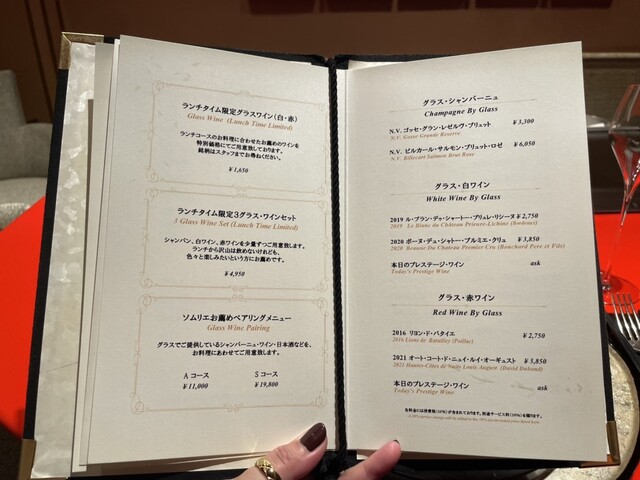 ランチタイム限定グラスワイン(白・赤)
Glass Wine (Lunch Time Limited)
ランチコースのお料理に合わせたお薦めのワインを
特別価格にてご用意致しております。
銘柄はスタッフまでお尋ねください。
¥1,650
ランチタイム限定3グラス・ワインセット
3 Glass Wine Set (Lunch Time Limited)
シャンパン、白ワイン、赤ワインを少量ずつご用意致します。
ランチから沢山は飲めないけれども、
色々と楽しみたいという方にお薦めです。
¥4,950
ソムリエお薦めペアリングメニュー
Glass Wine Pairing
グラスでご提供しているシャンパーニュ・ワイン・日本酒などを、
お料理にあわせてご用意致します。
Aコース Sコース
¥11,000 ¥19,800
グラス・シャンパーニュ
Champagne By Glass
N.V. ゴッセ・グラン・レゼルヴ・ブリュット ¥3,300
N.V. Gosse Grande Reserve
N.V. ビルカール・サルモン・ブリュット・ロゼ ¥6,050
N.V. Billecart Salmon Brut Rose
グラス・白ワイン
White Wine By Glass
2019 ル・ブラン・デュ・シャトー・プリュレ・リシーヌ ¥2,750
2019 Le Blanc du Château Prieure-Lichine (Bordeaux)
2020 ボーヌ・デュ・シャトー・プルミエ・クリュ ¥3,850
2020 Beaune Du Chateau Premier Cru (Bouchard Pere et Fils)
本日のプレステージ・ワイン ask
Today's Prestige Wine
グラス・赤ワイン
Red Wine By Glass
2016 リヨン・ド・バタイエ ¥2,750
2016 Lions de Batailley (Poillac)
2021 オート・コート・ド・ニュイ・ルイ・オーギュスト ¥3,850
2021 Hautes-Côtes de Nuits Louis August (David Duband)
本日のプレステージ・ワイン ask
Today's Prestige Wine
各料金には消費税(10%)が含まれております。別途サービス料(10%)を賜ります。